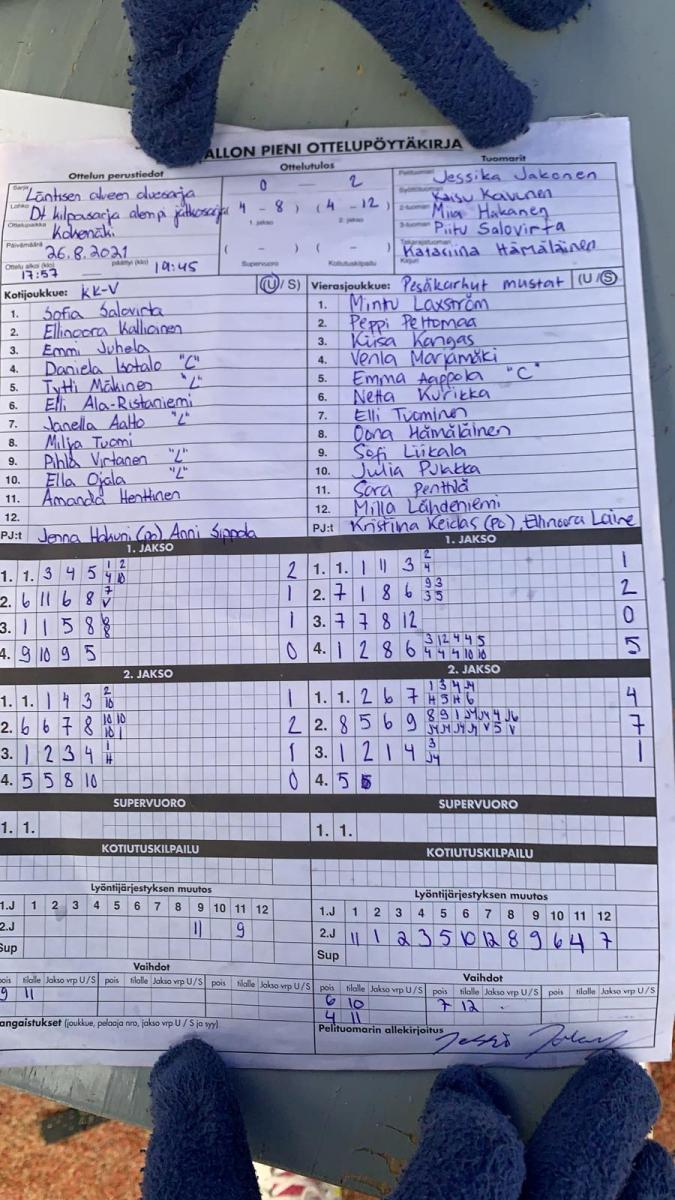 ALLON PIENI OTTELUPÖYTÄKIRJA
Ottelun perustiedot
Ottelutulos
Tuomarit
Sarja Läntisen alueen aluesarja
Lohko Dt kilpasarja alempi jatkosarja
Ottelupaikka Kokemäki
Päivämäärä 26.8.2021
Ottelu alkoi (klo) 17:57 päättyi (klo) 19:45
0 — 2
( 4 - 8 ) ( 4 - 12 )
1. jakso 2. jakso
( - ) ( - )
Supervuoro Kotiutuskilpailu
Pelituomari Jessika Jakonen
Syöttötuomari Kaisu Kavunen
2-tuomari Miia Hakanen
3-tuomari Piitu Salovirta
Takarajatuomari
Kirjuri Katariina Hämäläinen
Kotijoukkue: KK-V (U/ S)
1. Sofia Salovirta
2. Ellinoora Kallioinen
3. Emmi Juhela
4. Daniela Isotalo "C"
5. Tytti Mäkinen "L"
6. Elli Ala-Ristaniemi
7. Janella Aalto "L"
8. Milja Tuomi
9. Pihla Virtanen "L"
10. Ella Ojala "L"
11. Amanda Henttinen
12.
PJ:t Jenna Hakuni (PO) Anni Sippola
Vierasjoukkue: Pesäkarhut mustat (U/S)
1. Mintu Laxström
2. Peppi Peltomaa
3. Kiisa Kangas
4. Venla Marjamäki
5. Emma Aappola "C"
6. Netta Kurikka
7. Elli Tuominen
8. Oona Hämäläinen
9. Sofi Liikala
10. Julia Pulakka
11. Sara Penttilä
12. Milla Lähdeniemi
PJ:t Kristiina Keidas (PO), Ellinoora Laine
1. JAKSO
1. 1. 3 4 5 1 2 4 10 2
2. 6 11 6 8 7 V 1
3. 1 1 5 8 8 8 1
4. 9 10 9 5 0
1. JAKSO
1. 1. 1 11 3 2 4 1
2. 7 1 8 6 9 3 3 5 2
3. 7 7 8 12 0
4. 1 2 8 6 3 12 4 4 5 4 4 4 10 10 5
2. JAKSO
1. 1. 1 4 3 2 10 1
2. 6 6 7 8 10 10 10 1 2
3. 1 2 3 4 1 H 1
4. 5 5 8 10 0
2. JAKSO
1. 1. 2 6 7 1 3 4 J4 H 5 H 6 4
2. 8 5 6 9 8 9 1 J4 J4 4 J6 J4 J4 J4 J4 V 5 V 7
3. 1 2 1 4 3 J4 1
4. 5 5
SUPERVUORO
1. 1.
SUPERVUORO
1. 1.
KOTIUTUSKILPAILU
KOTIUTUSKILPAILU
Lyöntijärjestyksen muutos
1.J 1 2 3 4 5 6 7 8 9 10 11 12
2.J 11 9
Sup
Lyöntijärjestyksen muutos
1.J 1 2 3 4 5 6 7 8 9 10 11 12
2.J 11 1 2 3 5 10 12 8 9 6 4 7
Sup
Vaihdot
pois tilalle Jakso vrp U/S pois tilalle Jakso vrp U/S pois tilalle Jakso vrp U/S
9 11
Vaihdot
pois tilalle Jakso vrp U/S pois tilalle Jakso vrp U/S pois tilalle Jakso vrp U/S
6 10 7 12
4 11
angaistukset (joukkue, pelaaja nro, jakso vrp U / S ja syy)
Pelituomarin allekirjoitus